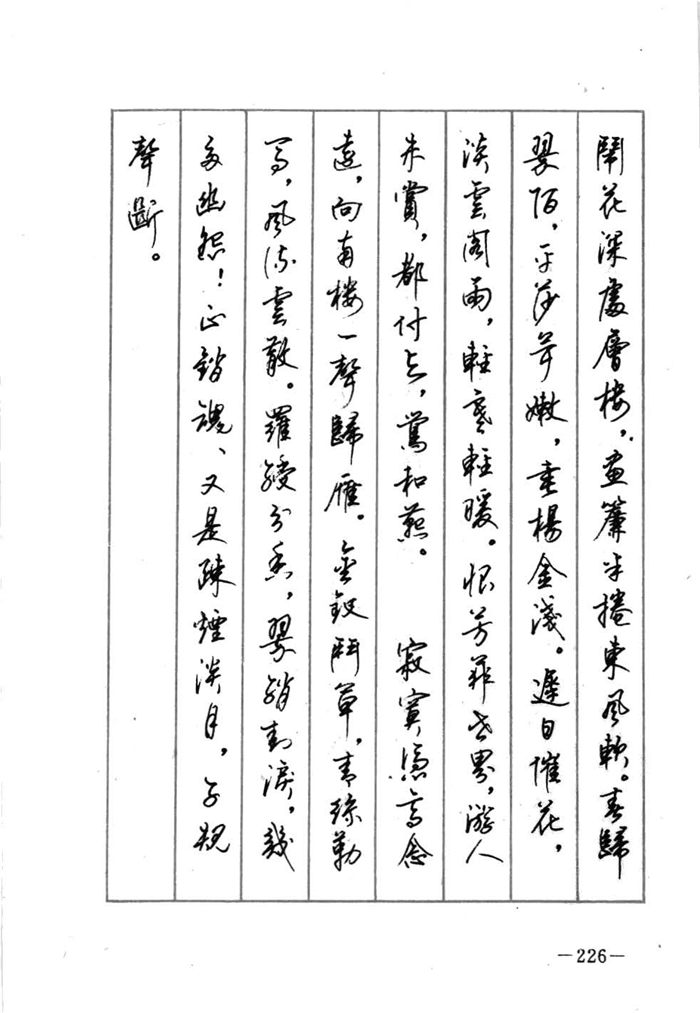 鬧花深處層樓，畫簾半捲東風軟。春歸
翠陌，平莎茸嫩，垂楊金淺。遲日催花，
淡雲閣雨，輕寒輕暖。恨芳菲世界，游人
未賞，都付與，鶯和燕。　　寂寞憑高念
遠，向南樓一聲歸雁。金釵鬥草，青絲勒
馬，風流雲散。羅綬分香，翠綃封淚，幾
多幽怨！正銷魂、又是疎煙淡月，子規
聲斷。
—226—